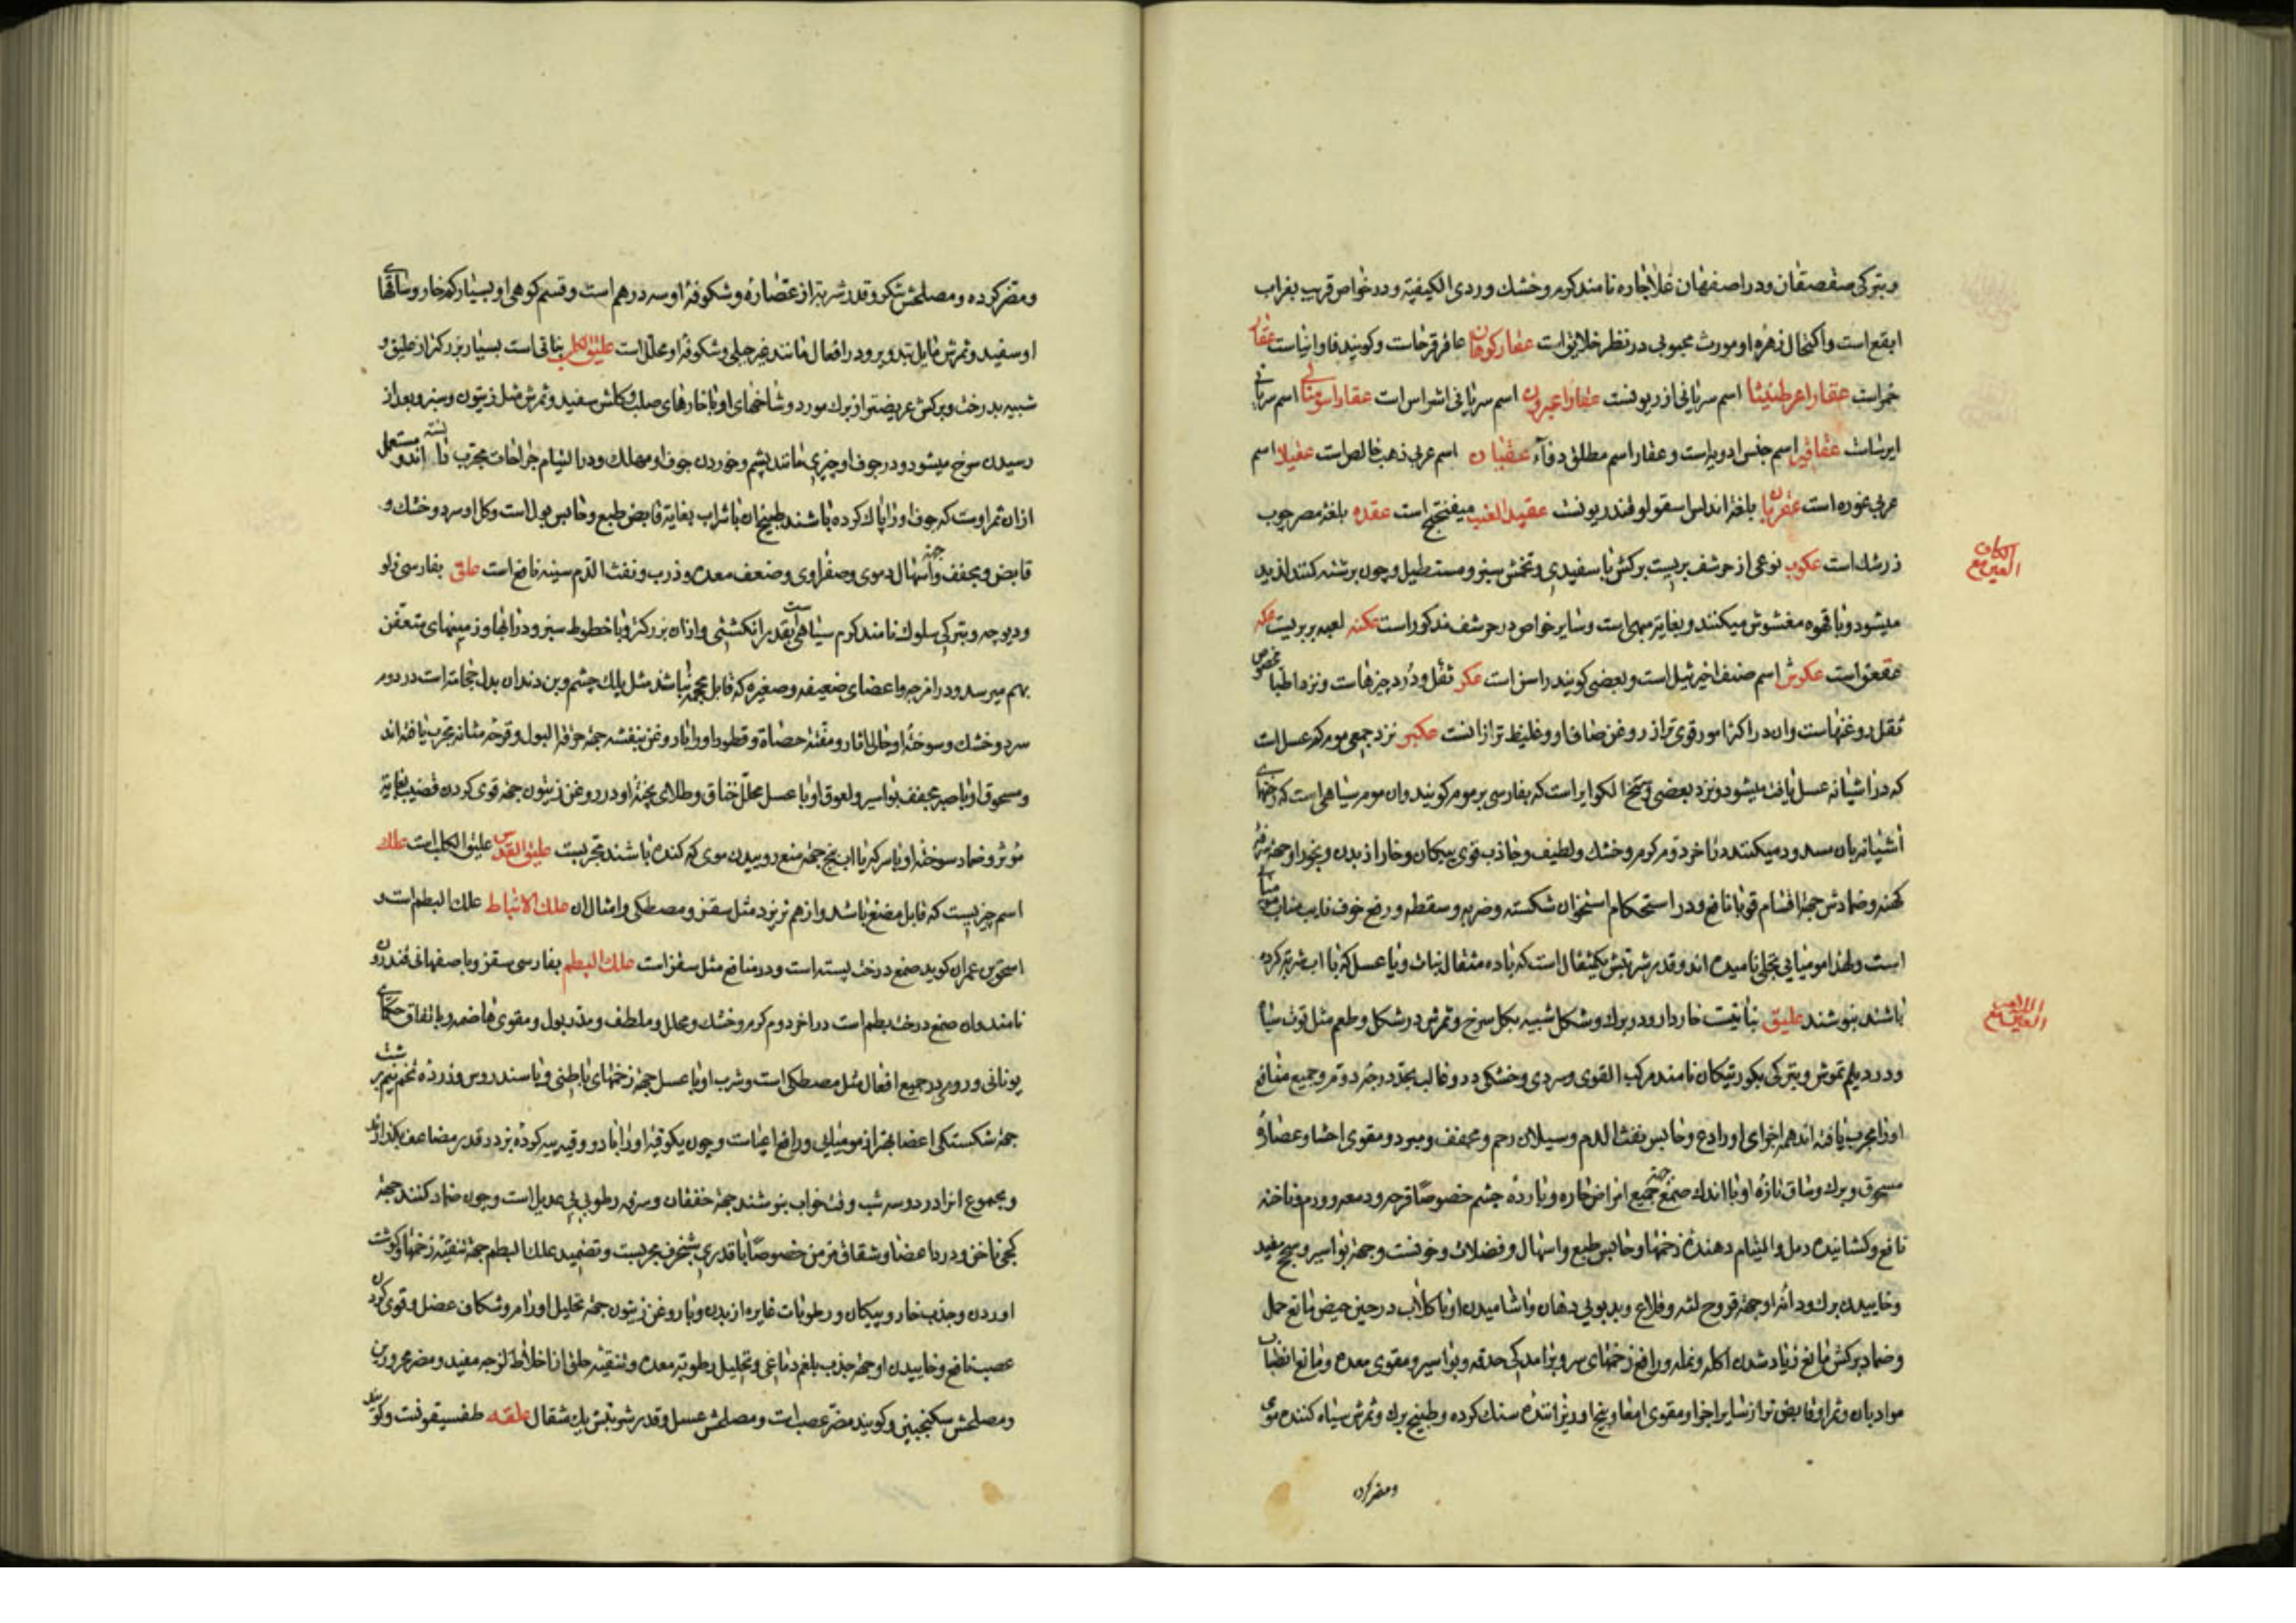 وبترکی سقصقان ودر اصفهان غلاجاره نامند کرم وخشک وردی الکیفیة ودر خواص قریب بغراب
ابقع است واکتحال زهرهٔ او مورث محبوبی در نظر خلایق است عقار کوهان عاقرقرحاست وکویند فاوانیاست عقار
خمر است عقارا عرطنیثا اسم سریانی اذریونست اسم سریانی اشراس است اسم سریانی
ایرساست عقاقیر اسم جنس ادویه است وعقار اسم مطلق دواء عقیان اسم عربی ذهب خالص است عقیلا اسم
عربی غوره است عقربان بلغة اندلس اسقولوقندریونست عقید العنب میفختج است عقده بلغة مصر چوب
زرشک است عکوب نوعی از حرشف بریست برکش با سفیدی وتخمش سبز ومستطیل وچون برشته کنند لذیذ
الکاف
العین مع
میشود وبا قهوه مغشوش میکنند وبغایة مبهی است وسایر خواص در حرشف مذکور است عکنه لعبه بربریست عکه
عقعق است عکرش اسم صنف اخیر ثیل است وبعضی کویند راسن است عکر ثفل ودُرد چیزهاست ونزد اطبا مخصوص
ثفل روغنهاست وان در اکثر امور قوی تر از روغن صاف او وغلیظ تر از انست عکبر نزد جمعی موم کهر عسل است
که در اشیانه عسل یافت میشود ونزد بعضی وسخ الکوایر است که بفارسی برموم کویند وان موم سیاهی است که رخنهای
اشیانه بان مسدود میکنند در اخر دوم کرم وخشک ولطیف وجاذب قوی پیکان وخار از بدن وبخور او جهة سرفهٔ
کهنه وضمادش جهة اقسام قوبا نافع ودر استحکام استخوان شکسته وضربه وسقطه ورفع خوف نایب مناب مومیائی
است ولهذا مومیائی نحلی نامیده اند وقدر شربتش یکمثقال است که با ده مثقال نبات ویا عسل که با اب شربت کرده
باشند بنوشند علیق نباتیست خاردار ودر برک وشکل شبیه بکل سرخ وثمرش در شکل وطعم مثل توت سیاه
اللام
العین مع
ودر دیلم تموش وبترکی بکورتیکان نامند مرکب القوی وسردی وخشکی در او غالب بحدّ درجهٔ دوم وجمیع منافع
او را مجرب یافته اند همه اجزای او رادع وحابس نفث الدم وسیلان رحم ومجفف ومبرد ومقوی احشا وعصارهٔ
مسحوق وبرک وساق تازهٔ او با اندک صمغ جهة جمیع امراض حاره وباردهٔ چشم خصوصًا قرحه ودمعه وورم وناخنه
نافع وکشایندهٔ دمل والتیام دهندهٔ زخمها وحابس طبع واسهال وفضلات وخونست وجهة بواسیر وسحج مفید
وخاییدن برک ودانهٔ او جهة قروح لثه وقلاع وبدبویی دهان واشامیدن او با کلاب در حین حیض مانع حمل
وضماد برکش مانع زیاد شدن اکله ونمله ورافع زخمهای سر وبرامدکی حدقه وبواسیر ومقوی معده ومانع انصباب
مواد بان وثمر او قابض تر از سایر اجزا ومقوی امعا وبیخ او ریزانندهٔ سنک کرده وطبیخ برک وثمرش سیاه کنندهٔ موی
ومضر کرده
ومضر کرده ومصلحش شکر وقدر شربة از عصاره وشکوفهٔ او سه درهم است وقسم کوهی او بسیار کم خار وساقهای
او سفید وثمرش مایل بتدویر ودر افعال مانند غیر جبلی وشکوفهٔ او محلل است علیق الکلب نباتی است بسیار بزرکتر از علیق و
شبیه بدرخت وبرکش عریضتر از برک مورد وشاخهای او با خارهای صلب وکلش سفید وثمرش مثل زیتون وسبز وبعد از
رسیدن سرخ میشود ودر جوف او چیزی مانند پشم وخوردن جوف او مهلک ودر التیام جراحات مجرب دانسته اند ومستعمل
از ان ثمر اوست که جوف او را پاک کرده باشند طبیخ ان با شراب بغایة قابض طبع وحابس بول است وکل او سرد وخشک و
قابض ومجفف وجهة اسهال دموی وصفراوی وضعف معده وذرب ونفث الدم سینه نافع است علق بفارسی زلو
ودیوچه وبترکی سلوک نامند کرم سیاهی است بقدر انکشتی واز ان بزرکتر وبا خطوط سبز ودر ابها وزمینهای متعفن
بهم میرسد ودر امزجه واعضای ضعیفه وصغیره که قابل محجمه نباشد مثل پلک چشم وبن دندان بدل حجامة است در دوم
سرد وخشک وسوختهٔ او جالی اثار ومفتت حصاة وقطور او را با روغن بنفشه جهة حرقة البول وقرحهٔ مثانه مجرب یافته اند
ومسحوق او با صبر مجفف بواسیر ولعوق او با عسل محلل خناق وطلای پختهٔ او در روغن زیتون جهة قوی کردن قضیب بغایة
مؤثر وضماد سوختهٔ او با سرکه یا اب بنج جهة منع روییدن موی که کنده باشند مجربست علیق القدس علیق الکلب است علک
اسم چیزیست که قابل مضغ باشد واز هم نریزد مثل سقز ومصطکی وامثال ان علک الانباط علک البطم است و
اسحق بن عمران کوید صمغ درخت پسته است ودر منافع مثل سقز است علک البطم بفارسی سقز وباصفهانی قندرون
نامند وان صمغ درخت بطم است در اخر دوم کرم وخشک ومحلل وملطف ومدر بول ومقوی هاضمه وباتفاق حکمای
یونانی وروم در جمیع افعال مثل مصطکی است وشرب او با عسل جهة زخمهای باطنی وبا سندروس وزردهٔ تخم نیم برشت
جهة شکستکی اعضا بهتر از مومیایی ورافع اعیاست وچون یکوقیه او را با دو وقیه پیه کردهٔ بز در قدر مضاعف بکدازند
ومجموع انرا در دو سه شب وقت خواب بنوشند جهة خفقان وسرفه رطوبی بی عدیل است وچون ضماد کنند جهة
کجی ناخن ودرد اعضا وشقاق مزمن خصوصًا با قدری شنجرف مجربست وتضمید علک البطم جهة تنقیهٔ زخمها وکوشت
اوردن وجذب خار وپیکان ورطوبات غایره از بدن وبا روغن زیتون جهة تحلیل اورام وشکاف عضل وقوی کردن
عصب نافع وخاییدن او جهة جذب بلغم دماغی وتحلیل رطوبة معده وتنقیهٔ حلق از اخلاط لزجه مفید ومضر محرورین
ومصلحش سکنجبین وکویند مضر عصب است ومصلحش عسل وقدر شربتش یک مثقال علقه طقسیقونست وکویند